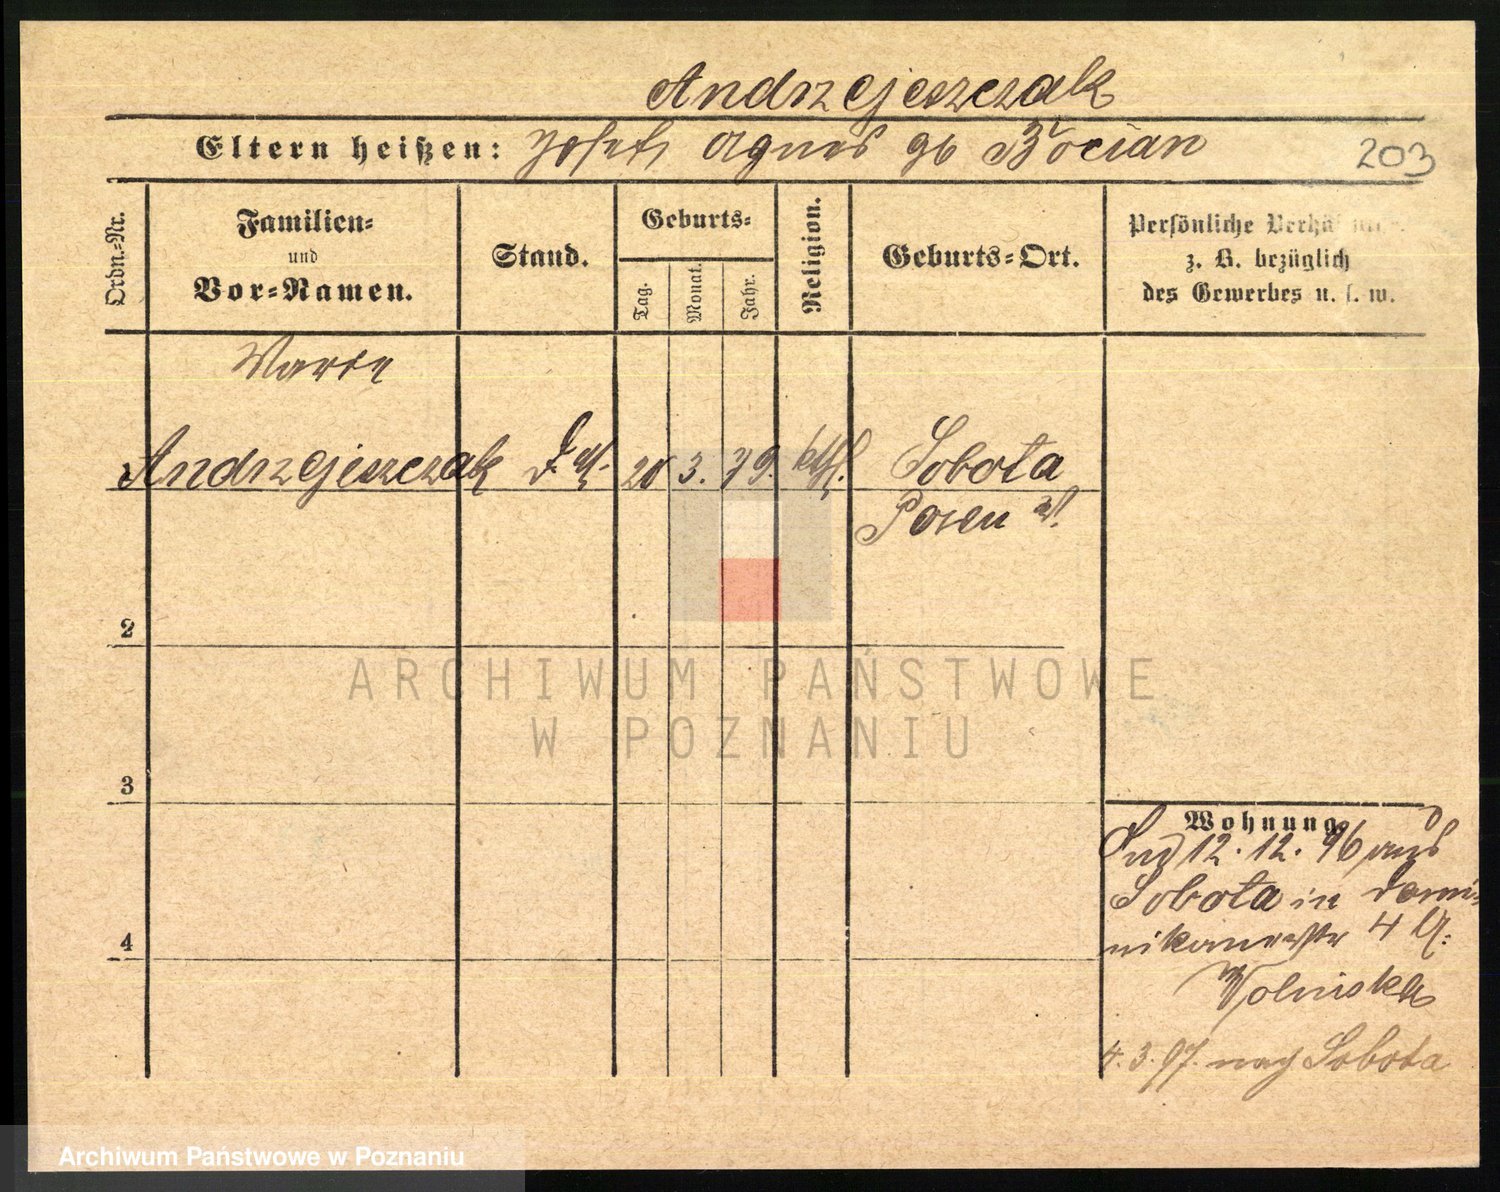 Andrzejeszczak
Eltern heißen: Josef, Agnes gb Bocian
203
Ordn.-Nr.
Familien-
und
Vor-Namen.
Stand.
Geburts-
Tag.
Monat.
Jahr.
Religion.
Geburts-Ort.
Persönliche Verhä
z. B. bezüglich
des Gewerbes u. s. w.
Andrzejeszczak D.M. 20 3. 79. kth. Sobota
Posen W.
2
3
4
Wohnung
12. 12. 96 aus
Sobota in Domi-
nikanerstr 4 b.
4. 3. 97. nach Sobota
ARCHIWUM PAŃSTWOWE
W POZNANIU
Archiwum Państwowe w Poznaniu